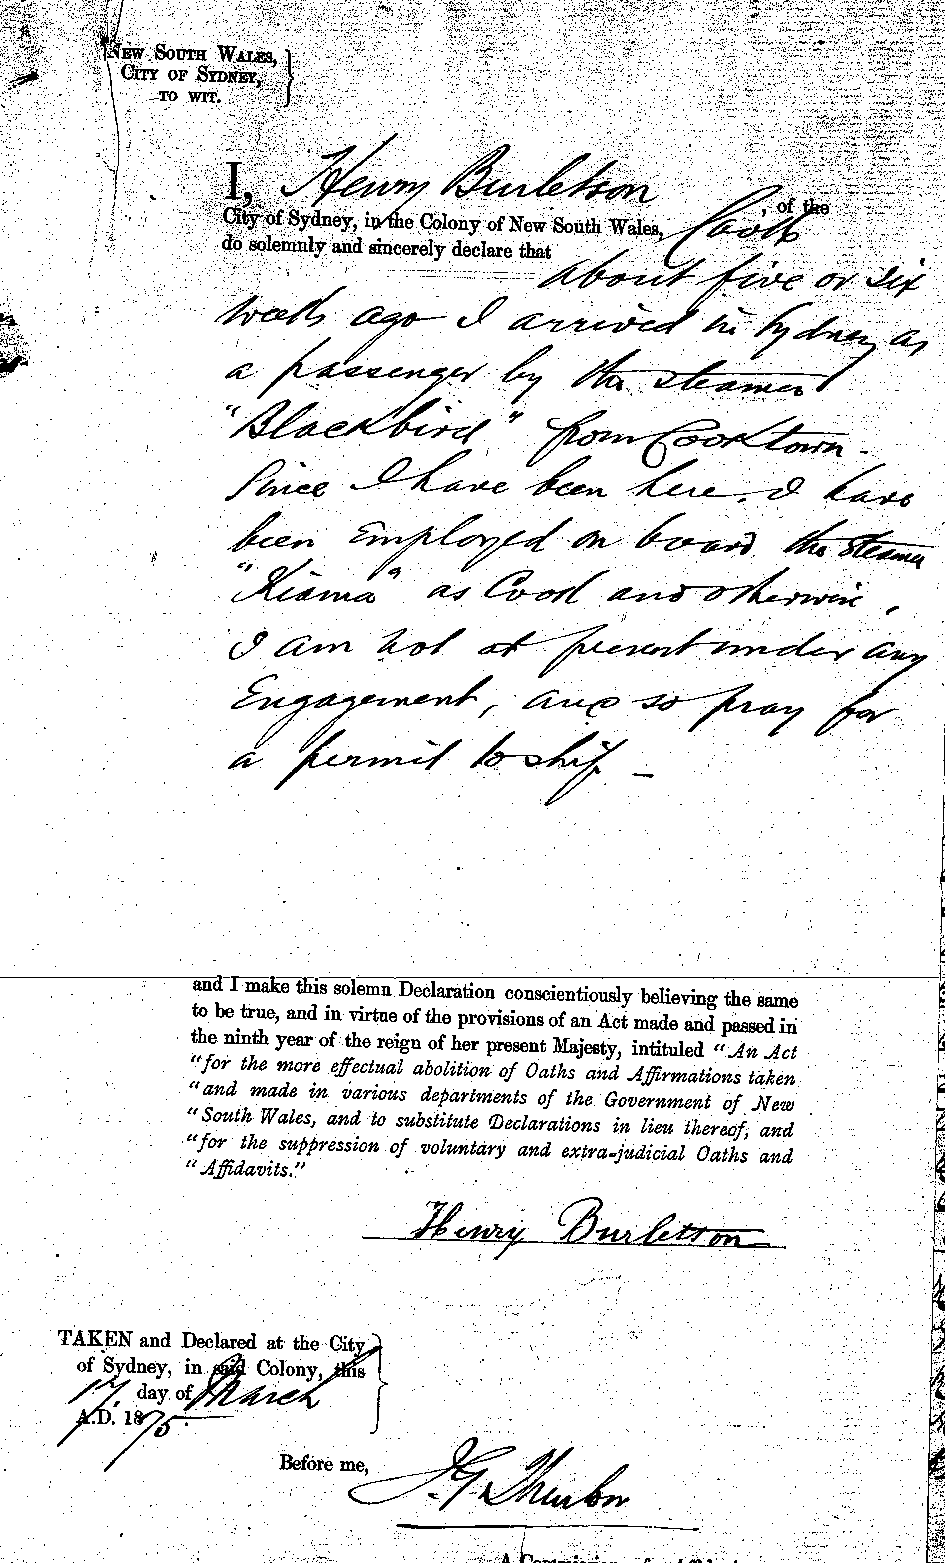 NEW SOUTH WALES,
CITY OF SYDNEY,
TO WIT.
I, Henry Burletson
, of the
City of Sydney, in the Colony of New South Wales, Cook
do solemnly and sincerely declare that
about five or six
weeks ago I arrived in Sydney as
a passenger by the steamer
"Blackbird" from Cooktown.
Since I have been here. I have
been Employed on board the Steamer
"Kiama" as Cook and otherwise,
I am not at present under any
Engagement, and so pray for
a permit to ship _
and I make this solemn Declaration conscientiously believing the same
to be true, and in virtue of the provisions of an Act made and passed in
the ninth year of the reign of her present Majesty, intituled "An Act
"for the more effectual abolition of Oaths and Affirmations taken
"and made in various departments of the Government of New
"South Wales, and to substitute Declarations in lieu thereof, and
"for the suppression of voluntary and extra-judicial Oaths and
"Affidavits."
Henry Burletson
TAKEN and Declared at the City
of Sydney, in said Colony, this
17. day of March
A.D. 1875.
Before me,